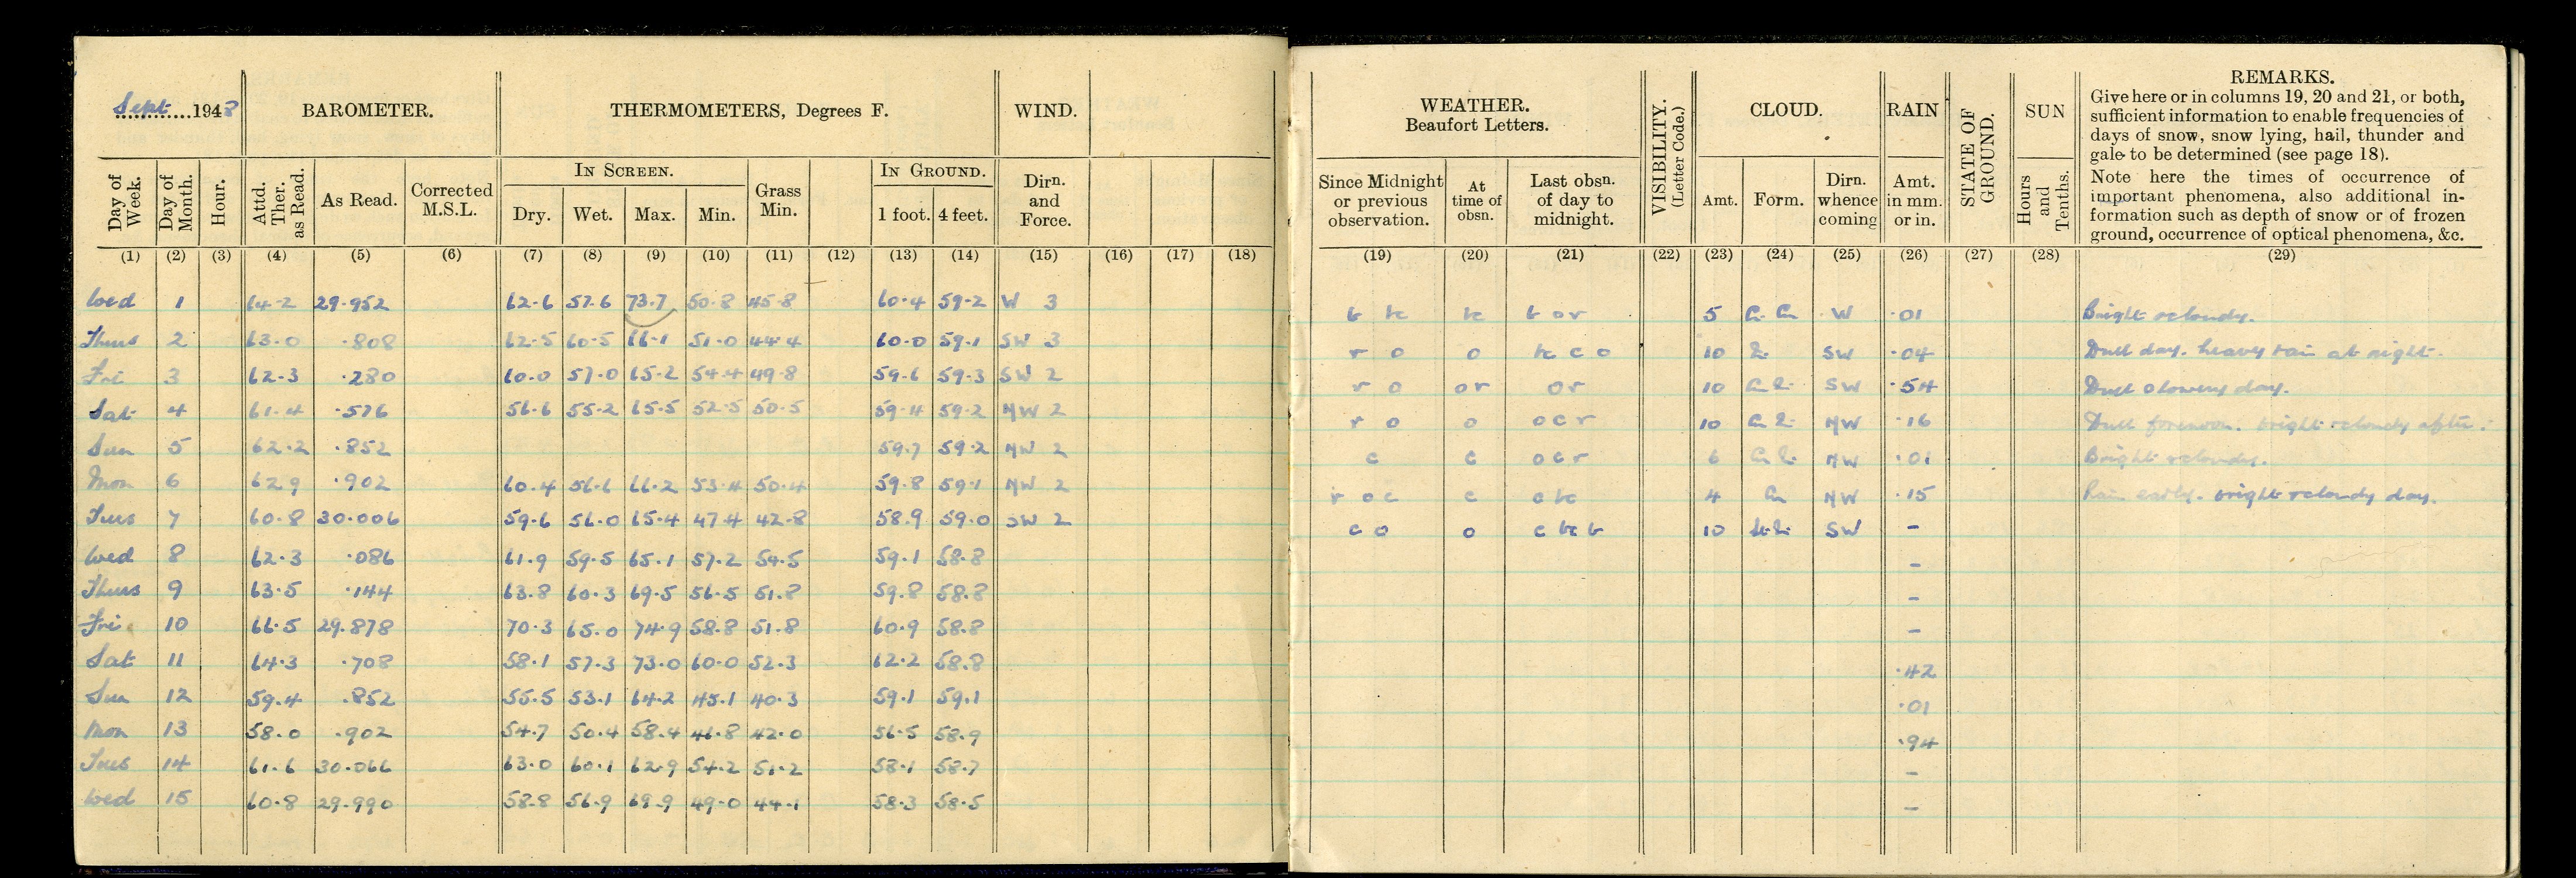 Sept 1948 BAROMETER. THERMOMETERS, Degrees F. WIND.
Day of Week. Day of Month. Hour. Attd. Ther. as Read. As Read. Corrected M.S.L. IN SCREEN. Dry. Wet. Max. Min. Grass Min. IN GROUND. 1 foot. 4 feet. Dirn. and Force.
(1) (2) (3) (4) (5) (6) (7) (8) (9) (10) (11) (12) (13) (14) (15) (16) (17) (18)
Wed 1 64.2 29.952 62.6 57.6 73.7 50.8 45.8 60.4 59.2 W 3
Thurs 2 63.0 .808 62.5 60.5 66.1 51.0 44.4 60.0 59.1 SW 3
Fri 3 62.3 .280 60.0 57.0 65.2 54.4 49.8 59.6 59.3 SW 2
Sat 4 61.4 .576 56.6 55.2 65.5 52.5 50.5 59.4 59.2 NW 2
Sun 5 62.2 .852 59.7 59.2 NW 2
Mon 6 62.9 .902 60.4 56.6 66.2 53.4 50.4 59.8 59.1 NW 2
Tues 7 60.8 30.006 59.6 56.0 65.4 47.4 42.8 58.9 59.0 SW 2
Wed 8 62.3 .086 61.9 59.5 65.1 57.2 54.5 59.1 58.8
Thurs 9 63.5 .144 63.8 60.3 69.5 56.5 51.8 59.8 58.8
Fri 10 66.5 29.878 70.3 65.0 74.9 58.8 51.8 60.9 58.8
Sat 11 64.3 .708 58.1 57.3 73.0 60.0 52.3 62.2 58.8
Sun 12 59.4 .852 55.5 53.1 64.2 45.1 40.3 59.1 59.1
Mon 13 58.0 .902 54.7 50.4 58.4 46.8 42.0 56.5 58.9
Tues 14 61.6 30.066 63.0 60.1 62.9 54.2 51.2 58.1 58.7
Wed 15 60.8 29.990 58.8 56.9 69.9 49.0 44.1 58.3 58.5
WEATHER. Beaufort Letters. VISIBILITY. (Letter Code.) CLOUD. RAIN STATE OF GROUND. SUN REMARKS.
Give here or in columns 19, 20 and 21, or both,
sufficient information to enable frequencies of
days of snow, snow lying, hail, thunder and
gale to be determined (see page 18).
Note here the times of occurrence of
important phenomena, also additional in-
formation such as depth of snow or of frozen
ground, occurrence of optical phenomena, &c.
Since Midnight or previous observation. At time of obsn. Last obsn. of day to midnight. Amt. Form. Dirn. whence coming Amt. in mm. or in. Hours and Tenths.
(19) (20) (21) (22) (23) (24) (25) (26) (27) (28) (29)
b bc bc b o r 5 W .01 Bright & cloudy.
r o o bc c o 10 SW .04 Dull day. heavy rain at night.
r o or or 10 SW .54 Dull showery day.
r o o o c r 10 NW .16 Dull forenoon. bright & cloudy after:
c c o c r 6 NW .01 Bright & cloudy.
r o c c c bc 4 NW .15 Rain early. bright & cloudy day.
c o o c bc b 10 SW -
-
-
-
.42
.01
.94
-
-